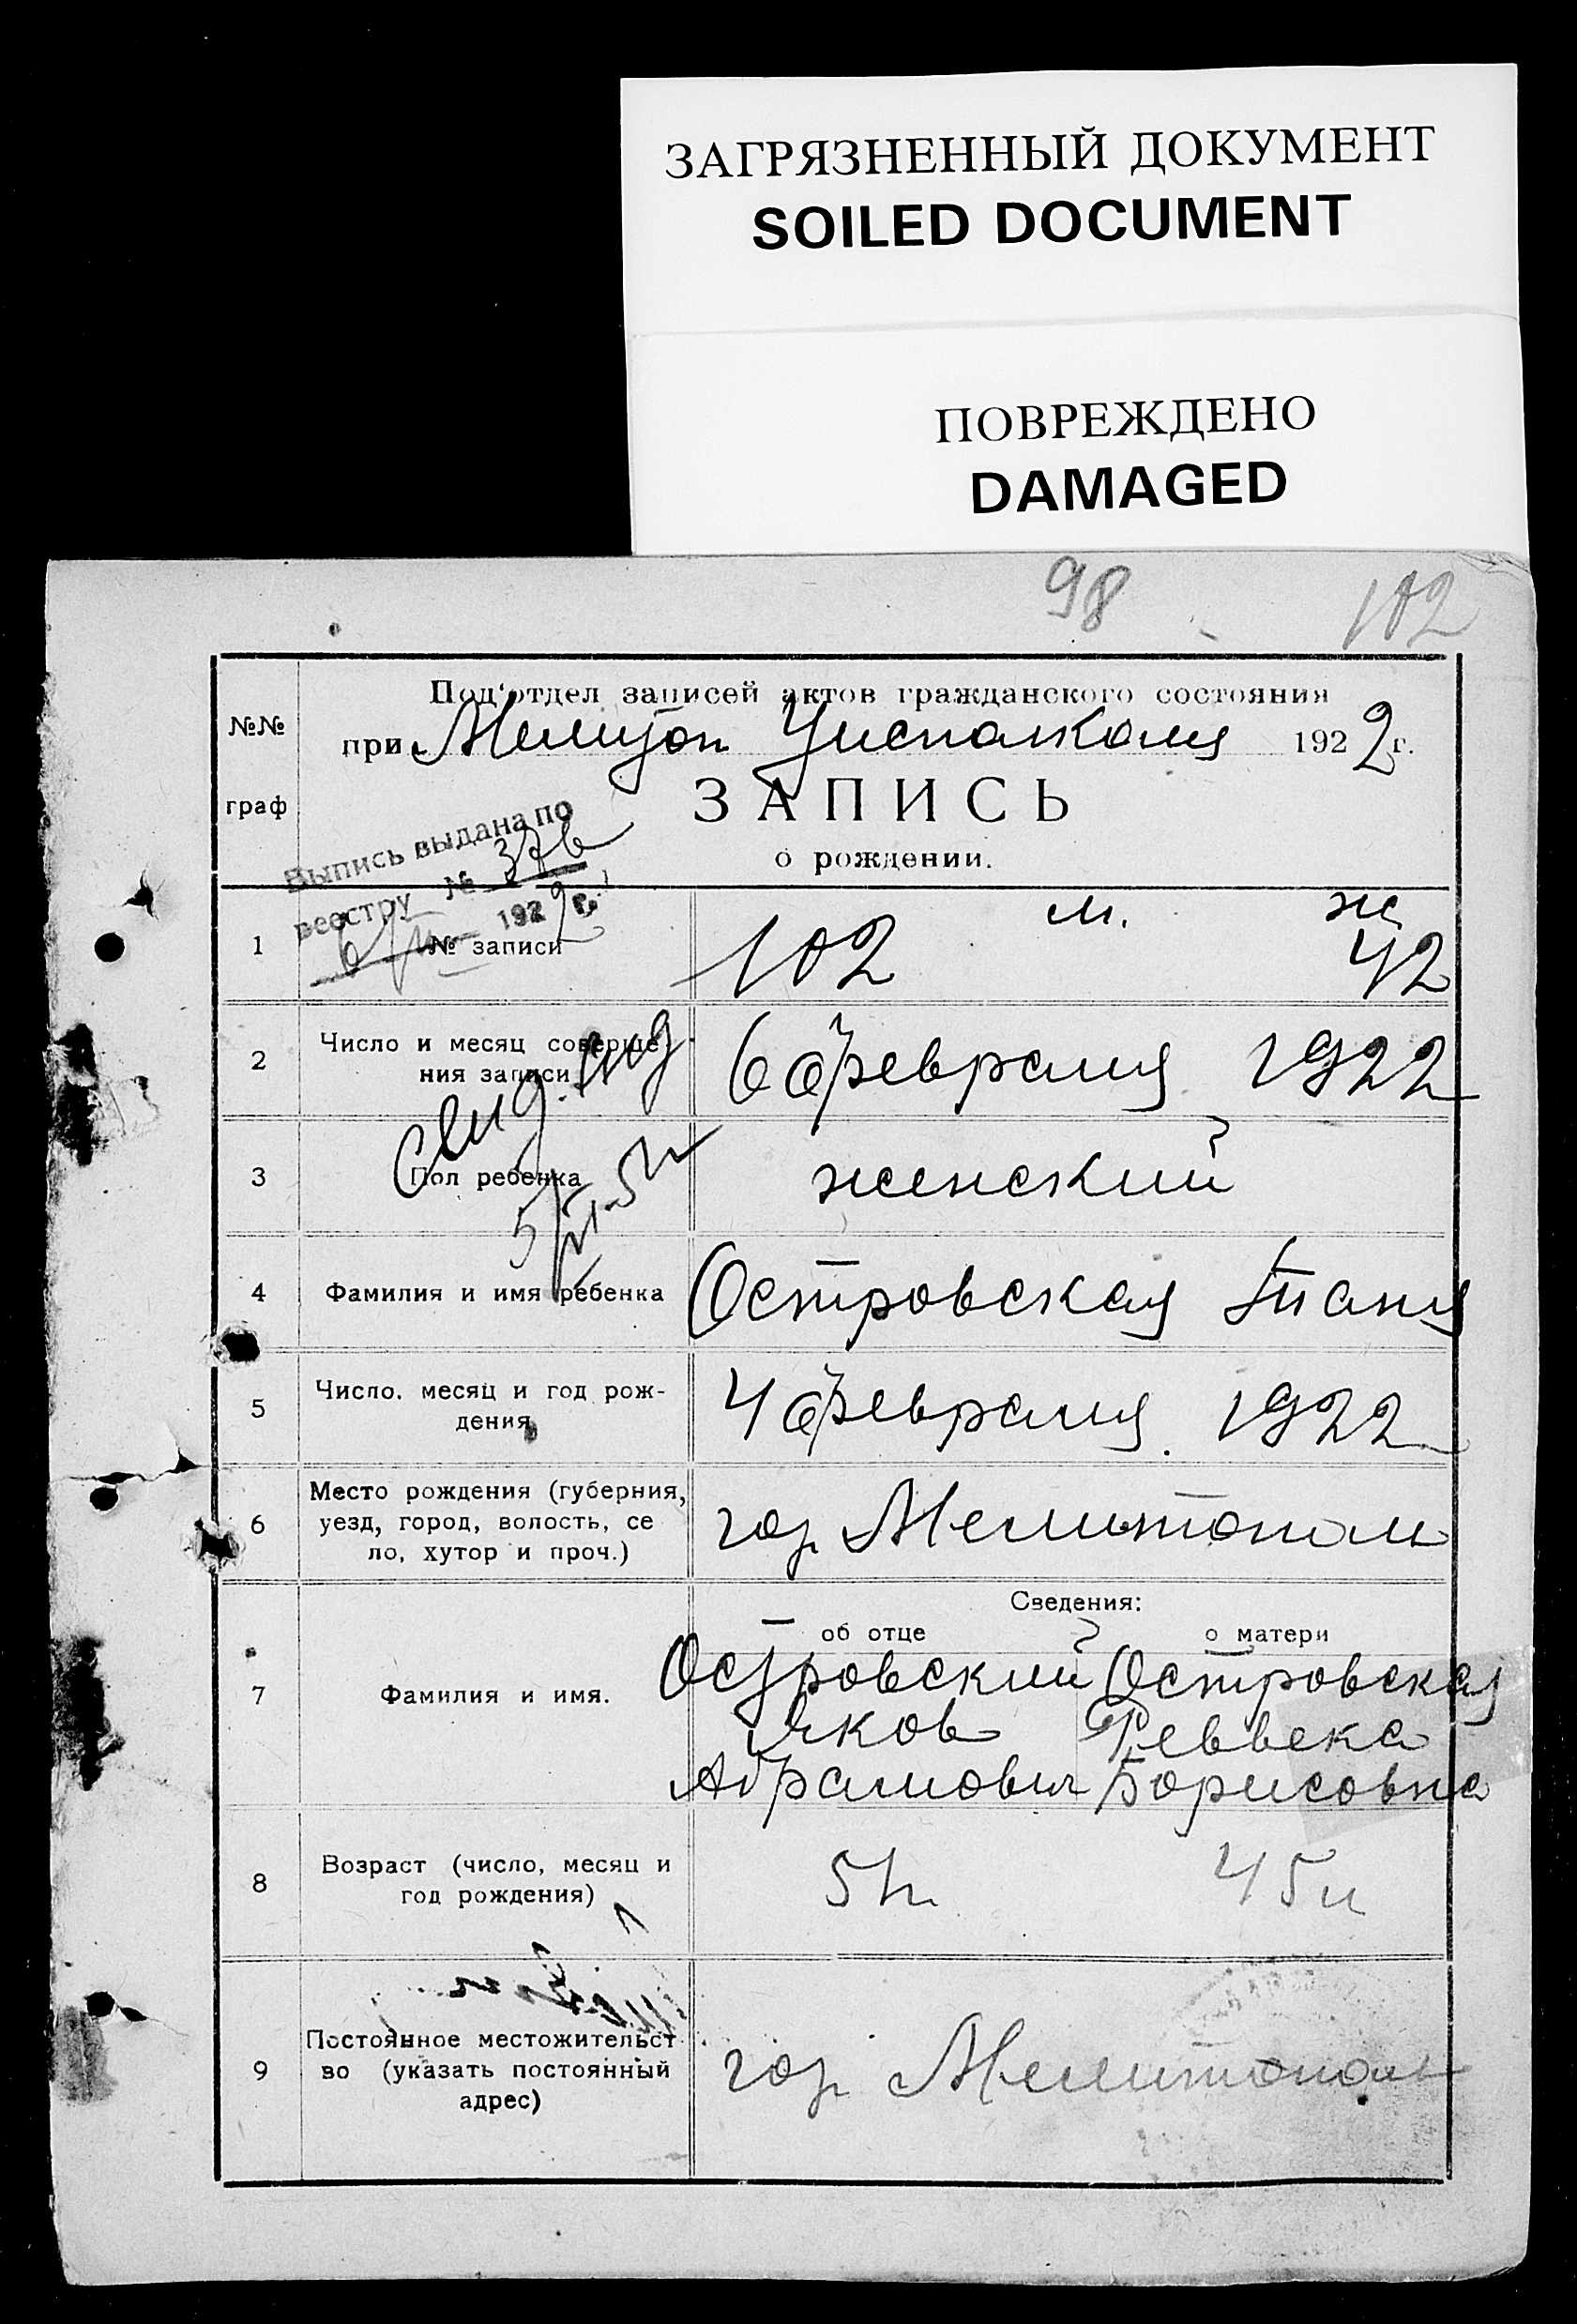 ЗАГРЯЗНЕННЫЙ ДОКУМЕНТ
SOILED DOCUMENT
ПОВРЕЖДЕНО
DAMAGED
98 102
№№ граф
Под'отдел записей актов гражданского состояния
при Мелитоп Уисполкоме 1922 г.
ЗАПИСЬ
о рождении.
Выпись выдана по
реестру № 376
1922 г.
м. ж
1 № записи 102 42
2 Число и месяц соверше-
ния записи 6 февраля 1922
Свид. выд
3 Пол ребенка женский
4 Фамилия и имя ребенка Островская Таня
5 Число, месяц и год рож-
дения 4 февраля 1922
6 Место рождения (губерния,
уезд, город, волость, се
ло, хутор и проч.) гор Мелитополь
Сведения:
об отце о матери
7 Фамилия и имя. Островский Островская
Яков Реввека
Абрамович Борисовна
8 Возраст (число, месяц и
год рождения) 51 45
9 Постоянное местожительст
во (указать постоянный
адрес) гор Мелитополь